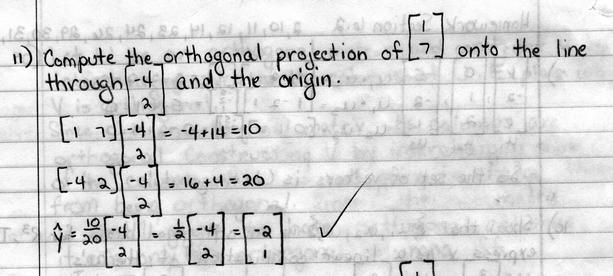 11) Compute the orthogonal projection of [1 7] onto the line
through [-4 2] and the origin.
[1 7][-4 2] = -4+14=10
[-4 2][-4 2] = 16+4=20
ŷ = 10/20 [-4 2] = 1/2 [-4 2] = [-2 1] ✓